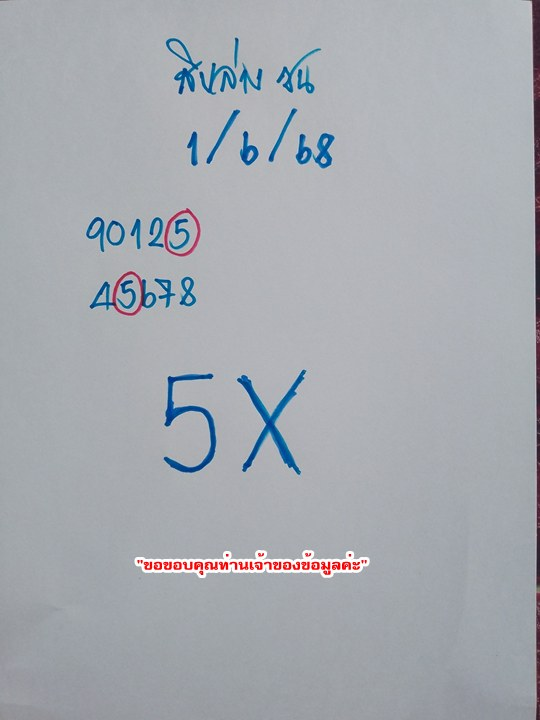 สิบล่าง ชน
1/6/68
90125
45678
5X
"ขอขอบคุณท่านเจ้าของข้อมูลค่ะ"